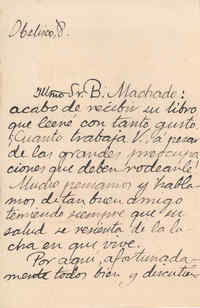 Obelisco, 8.
Illmo Sr. B. Machado:
acabo de recibir su libro
que leeré con tanto gusto.
¡Cuanto trabaja V. á pesar
de las grandes preocupa
ciones que deben rodearle!
Mucho pensamos y habla-
mos de tan buen amigo
temiendo siempre que su
salud se resienta de la lu
cha en que vive.
Por aqui, afortunada-
mente todos bien y discutien